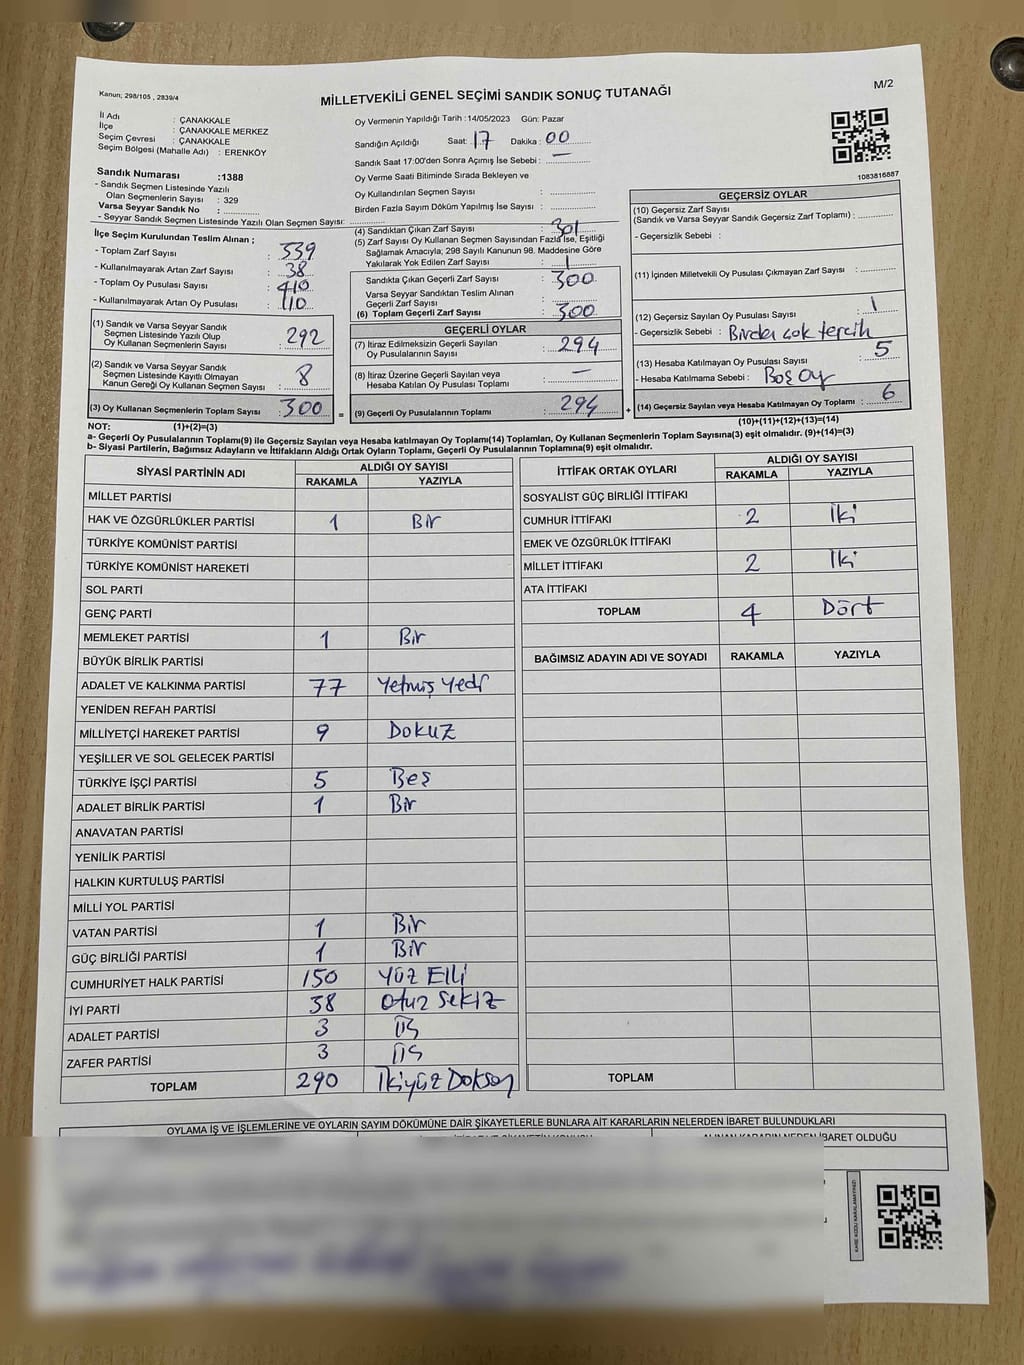 Kanun; 298/105 , 2839/4
MİLLETVEKİLİ GENEL SEÇİMİ SANDIK SONUÇ TUTANAĞI
M/2
İl Adı : ÇANAKKALE
İlçe : ÇANAKKALE MERKEZ
Seçim Çevresi : ÇANAKKALE
Seçim Bölgesi (Mahalle Adı) : ERENKÖY
Sandık Numarası :1388
- Sandık Seçmen Listesinde Yazılı
Olan Seçmenlerin Sayısı : 329
Varsa Seyyar Sandık No :
- Seyyar Sandık Seçmen Listesinde Yazılı Olan Seçmen Sayısı:
Oy Vermenin Yapıldığı Tarih :14/05/2023 Gün: Pazar
Sandığın Açıldığı Saat: 17 Dakika: 00
Sandık Saat 17:00'den Sonra Açımış İse Sebebi : —
Oy Verme Saati Bitiminde Sırada Bekleyen ve
Oy Kullandırılan Seçmen Sayısı :
Birden Fazla Sayım Döküm Yapılmış İse Sayısı :
1083816887
İlçe Seçim Kurulundan Teslim Alınan ;
- Toplam Zarf Sayısı : 339
- Kullanılmayarak Artan Zarf Sayısı : 38
- Toplam Oy Pusulası Sayısı : 410
- Kullanılmayarak Artan Oy Pusulası : 110
(1) Sandık ve Varsa Seyyar Sandık
Seçmen Listesinde Yazılı Olup
Oy Kullanan Seçmenlerin Sayısı : 292
(2) Sandık ve Varsa Seyyar Sandık
Seçmen Listesinde Kayıtlı Olmayan
Kanun Gereği Oy Kullanan Seçmen Sayısı : 8
(3) Oy Kullanan Seçmenlerin Toplam Sayısı : 300 =
(4) Sandıktan Çıkan Zarf Sayısı : 301
(5) Zarf Sayısı Oy Kullanan Seçmen Sayısından Fazla İse, Eşitliği
Sağlamak Amacıyla; 298 Sayılı Kanunun 98. Maddesine Göre
Yakılarak Yok Edilen Zarf Sayısı : 1
Sandıkta Çıkan Geçerli Zarf Sayısı : 300
Varsa Seyyar Sandıktan Teslim Alınan
Geçerli Zarf Sayısı :
(6) Toplam Geçerli Zarf Sayısı : 300
GEÇERLİ OYLAR
(7) İtiraz Edilmeksizin Geçerli Sayılan
Oy Pusulalarının Sayısı : 294
(8) İtiraz Üzerine Geçerli Sayılan veya
Hesaba Katılan Oy Pusulası Toplamı : —
(9) Geçerli Oy Pusulalarının Toplamı : 294 +
GEÇERSİZ OYLAR
(10) Geçersiz Zarf Sayısı
(Sandık ve Varsa Seyyar Sandık Geçersiz Zarf Toplamı) :
- Geçersizlik Sebebi :
(11) İçinden Milletvekili Oy Pusulası Çıkmayan Zarf Sayısı :
(12) Geçersiz Sayılan Oy Pusulası Sayısı : 1
- Geçersizlik Sebebi : Birden çok tercih
(13) Hesaba Katılmayan Oy Pusulası Sayısı : 5
- Hesaba Katılmama Sebebi : Boş Oy
(14) Geçersiz Sayılan veya Hesaba Katılmayan Oy Toplamı : 6
NOT: (1)+(2)=(3) (10)+(11)+(12)+(13)=(14)
a- Geçerli Oy Pusulalarının Toplamı(9) ile Geçersiz Sayılan veya Hesaba katılmayan Oy Toplamı(14) Toplamları, Oy Kullanan Seçmenlerin Toplam Sayısına(3) eşit olmalıdır. (9)+(14)=(3)
b- Siyasi Partilerin, Bağımsız Adayların ve İttifakların Aldığı Ortak Oyların Toplamı, Geçerli Oy Pusulalarının Toplamına(9) eşit olmalıdır.
SİYASİ PARTİNİN ADI ALDIĞI OY SAYISI
RAKAMLA YAZIYLA
MİLLET PARTİSİ
HAK VE ÖZGÜRLÜKLER PARTİSİ 1 Bir
TÜRKİYE KOMÜNİST PARTİSİ
TÜRKİYE KOMÜNİST HAREKETİ
SOL PARTİ
GENÇ PARTİ
MEMLEKET PARTİSİ 1 Bir
BÜYÜK BİRLİK PARTİSİ
ADALET VE KALKINMA PARTİSİ 77 Yetmiş Yedi
YENİDEN REFAH PARTİSİ
MİLLİYETÇİ HAREKET PARTİSİ 9 Dokuz
YEŞİLLER VE SOL GELECEK PARTİSİ
TÜRKİYE İŞÇİ PARTİSİ 5 Beş
ADALET BİRLİK PARTİSİ 1 Bir
ANAVATAN PARTİSİ
YENİLİK PARTİSİ
HALKIN KURTULUŞ PARTİSİ
MİLLİ YOL PARTİSİ
VATAN PARTİSİ 1 Bir
GÜÇ BİRLİĞİ PARTİSİ 1 Bir
CUMHURİYET HALK PARTİSİ 150 Yüz Elli
İYİ PARTİ 38 Otuz Sekiz
ADALET PARTİSİ 3 Üç
ZAFER PARTİSİ 3 Üç
TOPLAM 290 İkiyüz Doksan
İTTİFAK ORTAK OYLARI ALDIĞI OY SAYISI
RAKAMLA YAZIYLA
SOSYALİST GÜÇ BİRLİĞİ İTTİFAKI
CUMHUR İTTİFAKI 2 İki
EMEK VE ÖZGÜRLÜK İTTİFAKI
MİLLET İTTİFAKI 2 İki
ATA İTTİFAKI
TOPLAM 4 Dört
BAĞIMSIZ ADAYIN ADI VE SOYADI RAKAMLA YAZIYLA
TOPLAM
OYLAMA İŞ VE İŞLEMLERİNE VE OYLARIN SAYIM DÖKÜMÜNE DAİR ŞİKAYETLERLE BUNLARA AİT KARARLARIN NELERDEN İBARET BULUNDUKLARI
ALINAN KARARIN NEDEN İBARET OLDUĞU